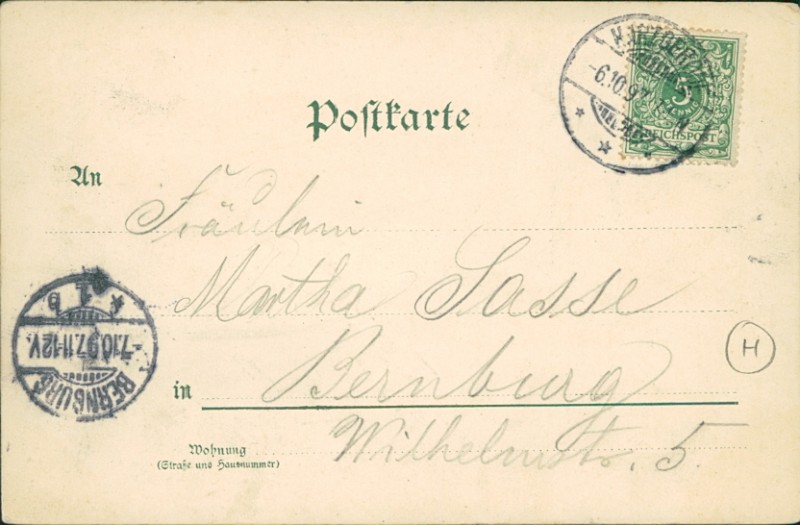 Postkarte
-6.10.97
5
REICHSPOST
An
Fräulein
Martha Sasse
in Bernburg
Wilhelmstr. 5.
Wohnung
(Straße und Hausnummer)
BERNBURG
-7.10.97.11-12V.
H